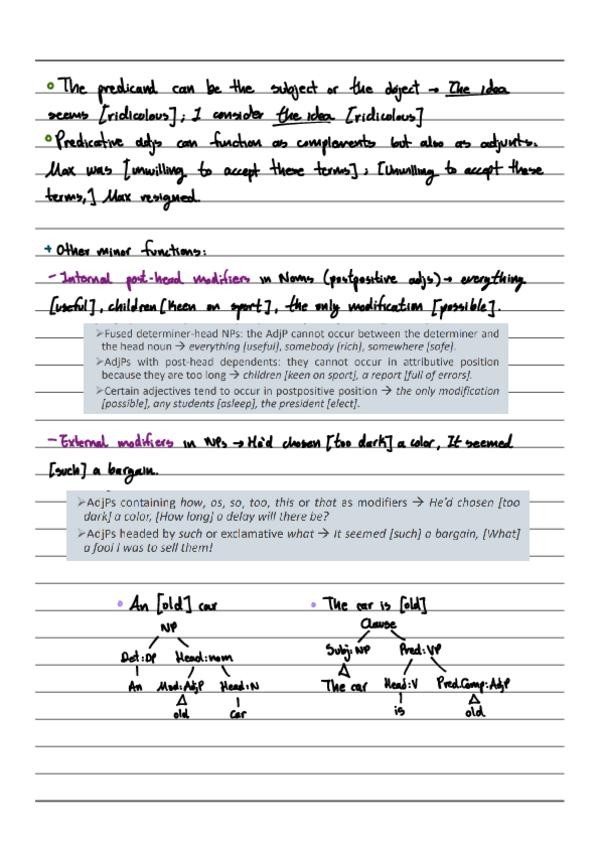 The predicand can be the subject or the object → The idea
seems [ridicolous]; I consider the idea [ridicolous]
Predicative adjs can function as complements but also as adjunts.
Max was [unwilling to accept these terms]; [Unwilling to accept these
terms,] Max resigned.
+ Other minor functions:
- Internal post-head modifiers in Noms (postpositive adjs) → everything
[useful], children [keen on sport], the only modification [possible].
➢Fused determiner-head NPs: the AdjP cannot occur between the determiner and
the head noun → everything [useful], somebody [rich], somewhere [safe].
➢AdjPs with post-head dependents: they cannot occur in attributive position
because they are too long → children [keen on sport], a report [full of errors].
➢Certain adjectives tend to occur in postpositive position → the only modification
[possible], any students [asleep], the president [elect].
- External modifiers in NPs → He'd chosen [too dark] a color, It seemed
[such] a bargain.
➢AdjPs containing how, as, so, too, this or that as modifiers → He'd chosen [too
dark] a color, [How long] a delay will there be?
➢AdjPs headed by such or exclamative what → It seemed [such] a bargain, [What]
a fool I was to sell them!
An [old] car
NP
Det:DP Head:nom
An Mod:AdjP Head:N
old car
The car is [old]
Clause
Subj:NP Pred:VP
The car Head:V Pred.Comp:AdjP
is old